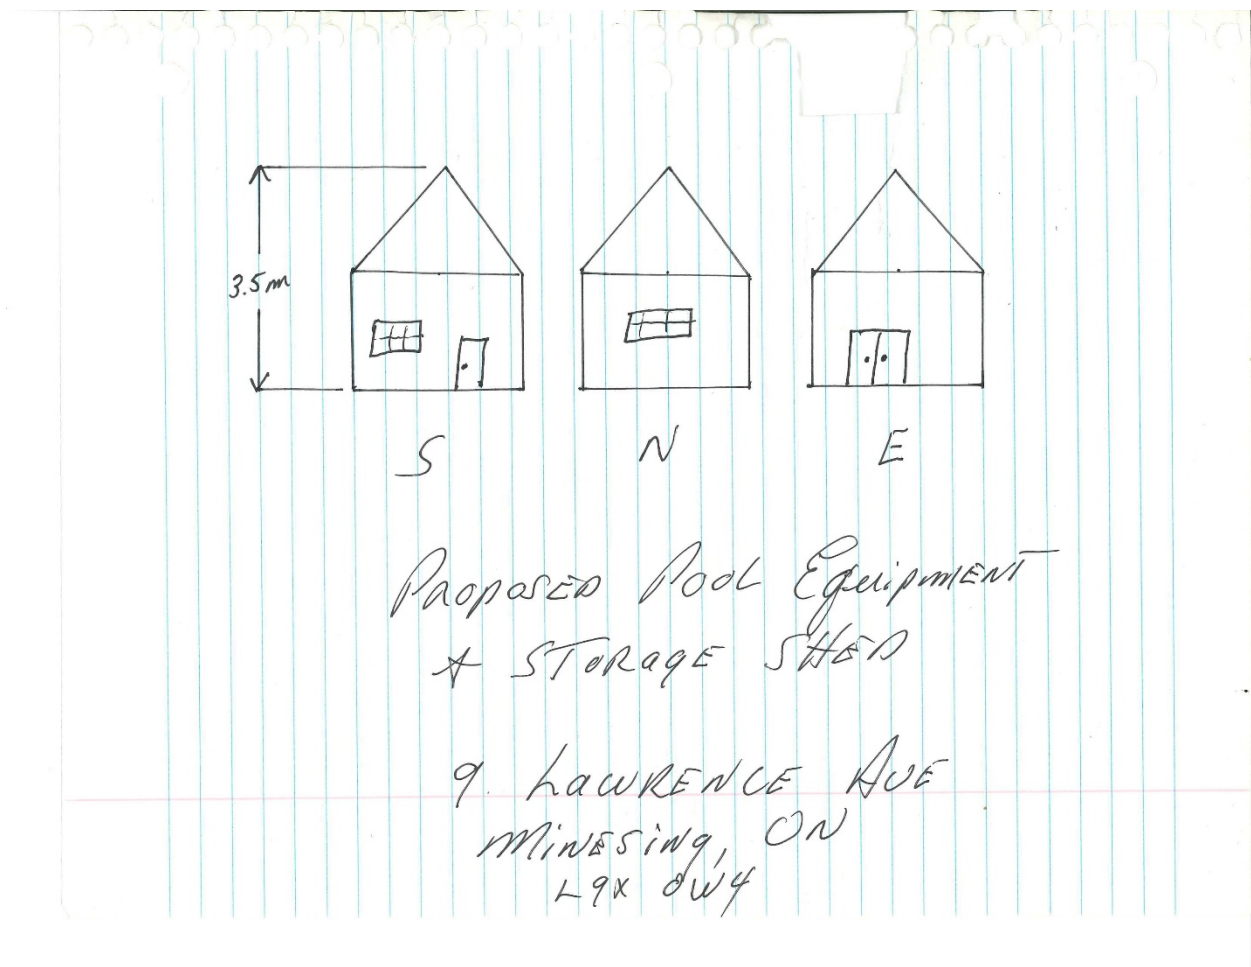 3.5m
S N E
Proposed Pool Equipment
+ Storage Shed
9 Lawrence Ave
Minesing, ON
L9X 0W4